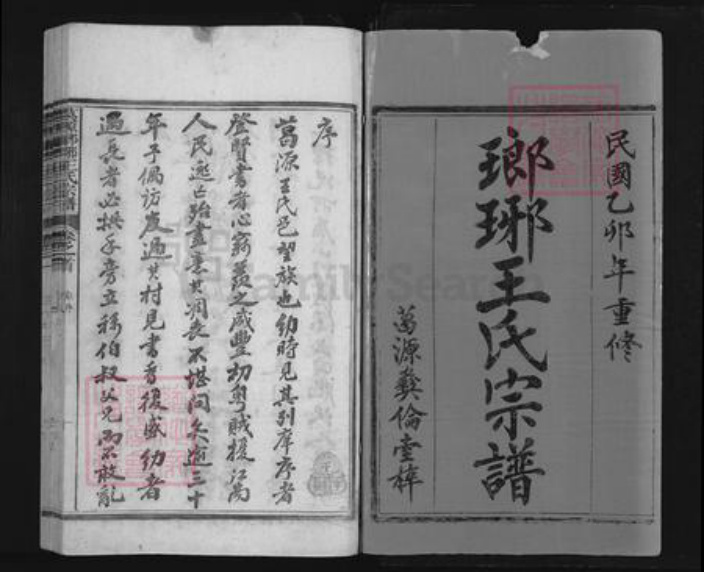 民國乙卯年重修
瑯琊王氏宗譜
萬源彝倫堂梓
序
萬源王氏邑望族也幼時見其列庠序者
登賢書者心竊羨之咸豐初粵賊擾江南
人民逃亡殆盡意其凋喪不堪問矣逾三十
年予偶訪友過其村見書香復盛幼者
遇長者必拱手旁立稱伯叔父兄而不敢亂
王氏宗譜
FamilySearch